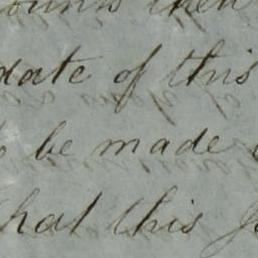 then
date of this
be made
that this